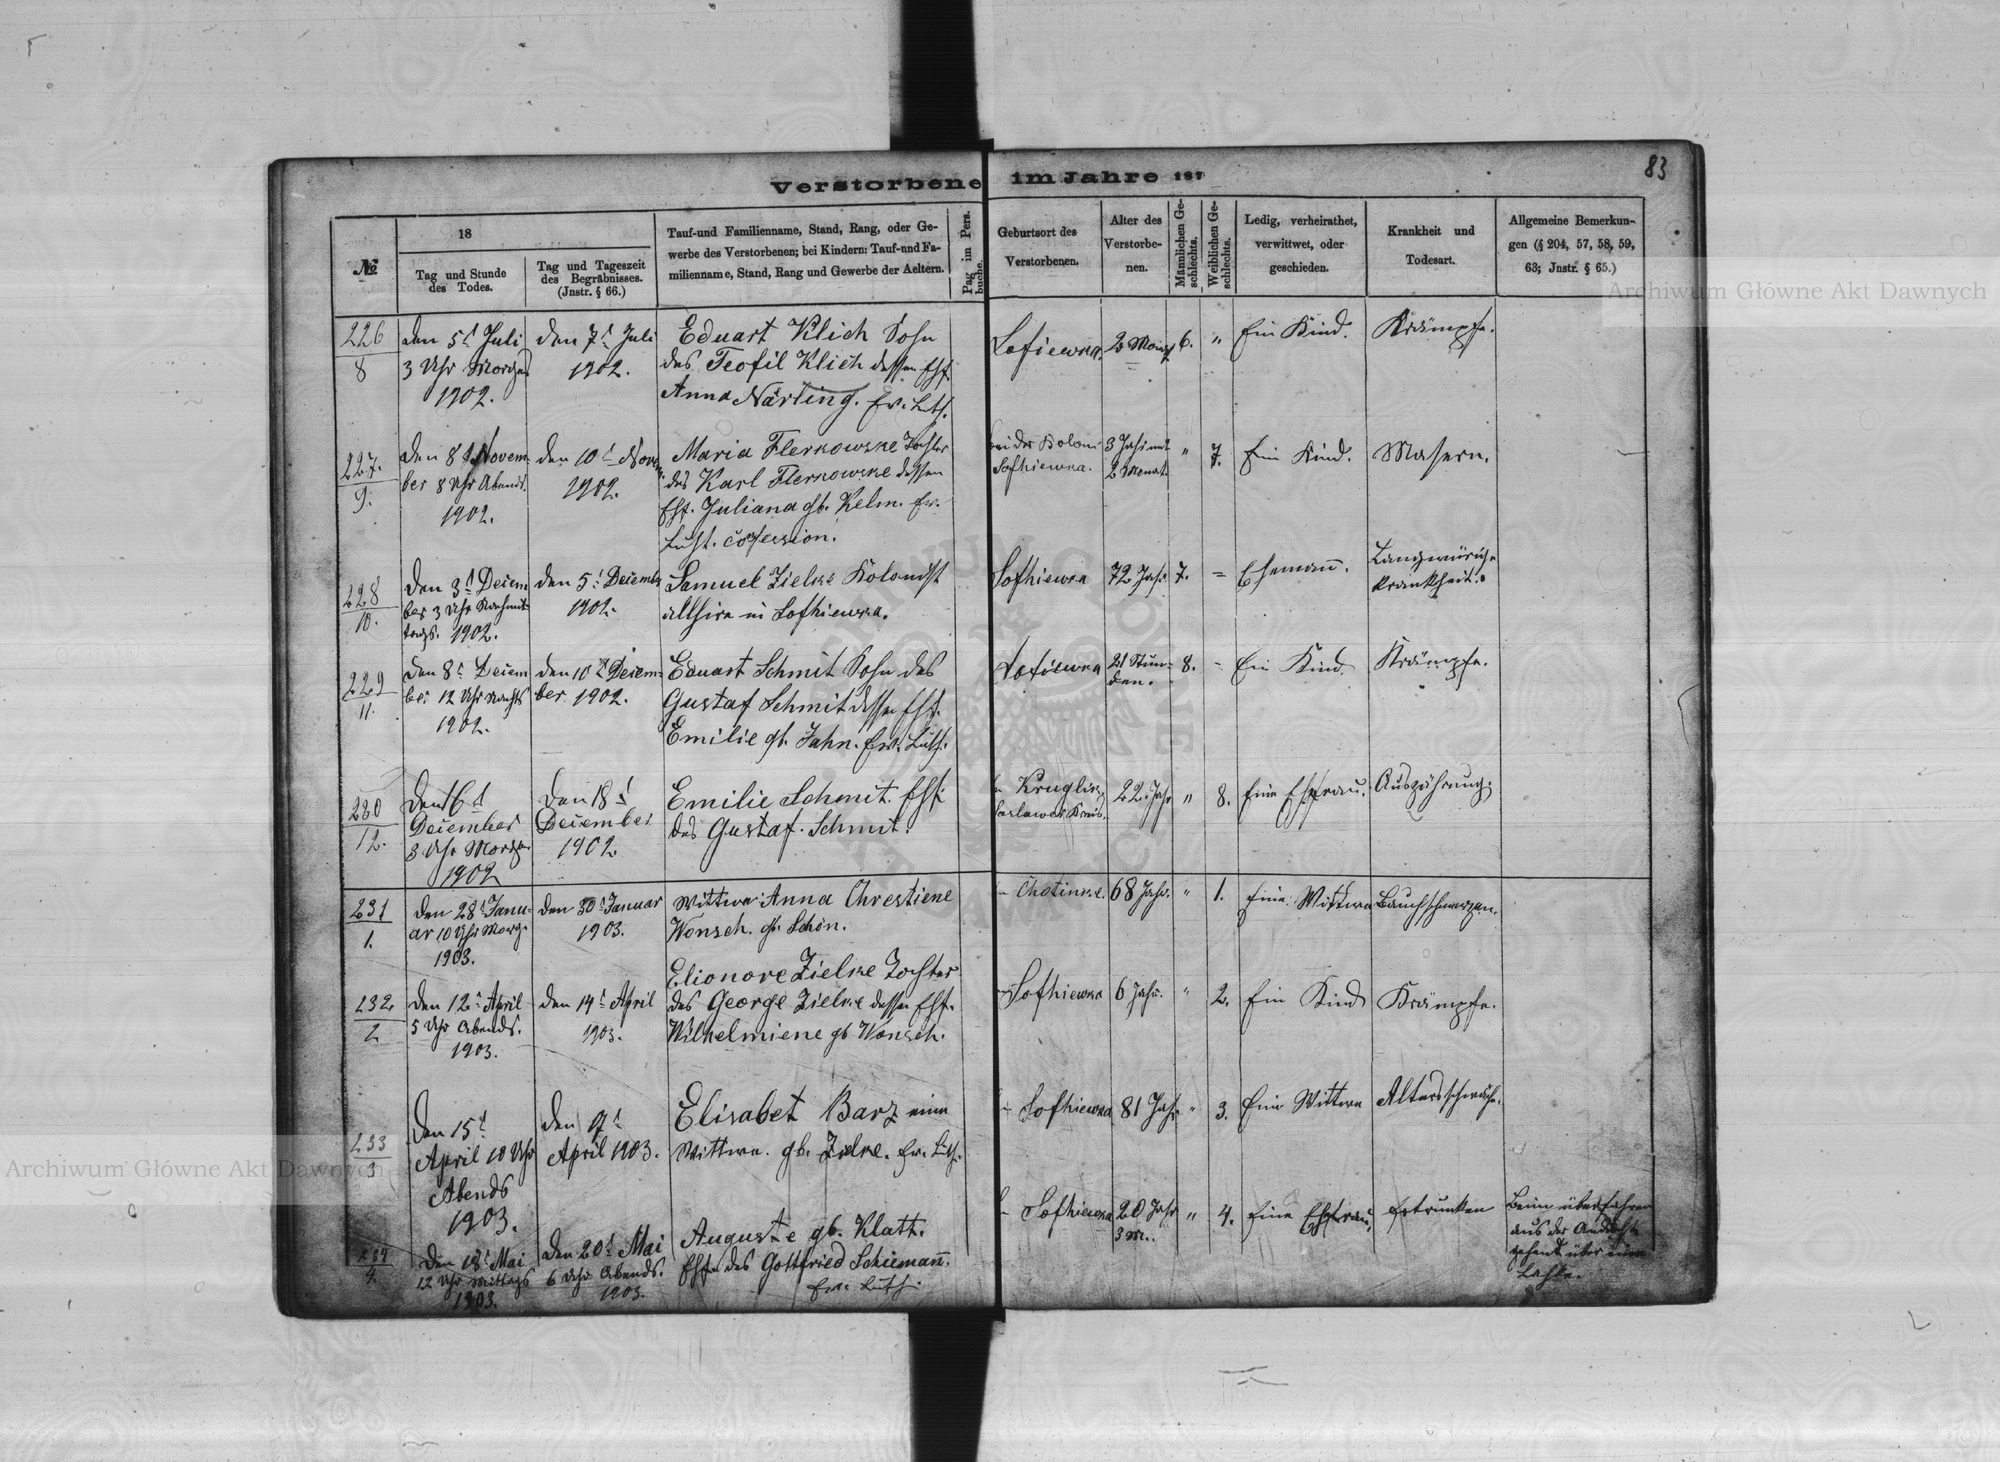 83
Verstorbene im Jahre 187
№
18
Tag und Stunde
des Todes.
Tag und Tageszeit
des Begräbnisses.
(Jnstr. § 66.)
Tauf-und Familienname, Stand, Rang, oder Ge-
werbe des Verstorbenen; bei Kindern: Tauf-und Fa-
milienname, Stand, Rang und Gewerbe der Aeltern.
Pag im Pers.
buche.
Geburtsort des
Verstorbenen.
Alter des
Verstorbe-
nen.
Männlichen Ge-
schlechts.
Weiblichen Ge-
schlechts.
Ledig, verheirathet,
verwittwet, oder
geschieden.
Krankheit und
Todesart.
Allgemeine Bemerkun-
gen (§ 204, 57, 58, 59,
63; Jnstr. § 65.)
226
8
den 5t Juli
3 Uhr Morgens
1902.
den 7t Juli
1902.
Eduart Klich Sohn
des Teofil Klich dessen Ehf.
Anna Närling. Ew. Luth.
Sofiewka.
2 Monat
6.
"
Ein Kind.
Krämpfe.
227.
9.
den 8t Novem-
ber 8 Uhr Abends.
1902.
den 10t Novem
1902.
Maria Flerkowske Tochter
des Karl Flerkowske dessen
Ehf. Juliana gb. Kelm. Ew.
Luht. confession.
bei der Koloni
Sofhiewka.
3 Jahr mit
2 Monat
"
7.
Ein Kind.
Masern.
228
10.
den 3t Decem
ber 3 Uhr Nachmit-
tags. 1902.
den 5t Decembr
1902.
Samuel Zielke Kolonist
allhire in Sofhiewka.
Sofhiewka
72 Jahr
7.
=
Ehemann.
Langwürige
krankheit.
229
11.
den 8t Decem
ber 12 Uhr Nachts
1902.
den 10t Decem-
ber 1902.
Eduart Schmit Sohn des
Gustaf Schmit dessen Ehf.
Emilie gb. Jahn. Ew. Luth.
Sofiewka
21 Stun-
den.
8.
-
Ein Kind
Krämpfe.
230
12.
Den 16t
December
3 Uhr Morgen
1902
Den 18t
December
1902.
Emilie Schmit. Ehf.
des Gustaf. Schmit.
Kruglik
22. Jahr
"
8.
Eine Ehefrau.
Auszährung.
231
1.
den 28t Janu-
ar 10 Uhr Morg.
1903.
den 30t Januar
1903.
Wittwe Anna Chrestiene
Wonsch. gb. Schön.
Chotinke.
68 Jahr.
"
1.
Eine Wittwe
Bauchschmerzen.
232
2
den 12t April
5 Uhr Abends.
1903.
den 14t April
1903.
Elionore Zielke Tochter
des George Zielke dessen Ehf.
Wilhelmiene gb Wonsch.
Sofhiewka
6 Jahr.
"
2.
Ein Kind
Krämpfe.
233
3
Den 15t
April 10 Uhr
Abends
1903.
den 9t
April 1903.
Elisabet Barz eine
Wittwe. gb. Zielke. Ew. Luth.
Sofhiewka
81 Jahr
"
3.
Eine Wittwe
Altersschwäche.
234
4.
Den 18t Mai
12 Uhr Mittags
1903.
Den 20t Mai
6 Uhr Abends.
1903.
Auguste gb. Klatt.
Ehf. des Gottfried Schiemann.
Ew. Luth.
Sofhiewka
20 Jahr
3 M.
"
4.
Eine Ehefrau.
Ertrunken
Beim überfahren
aus der Andacht
gehent über eine
Lachke.
Archiwum Główne Akt Dawnych
Archiwum Główne Akt Dawnych